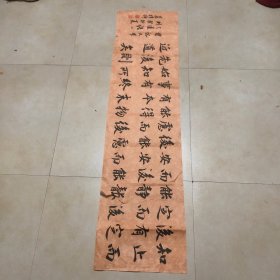 知止而
後有定
定而後
能靜靜
而後能
安安而
後能慮
慮而後
能得物
有本末
事有終
始知所
先後則
近道矣